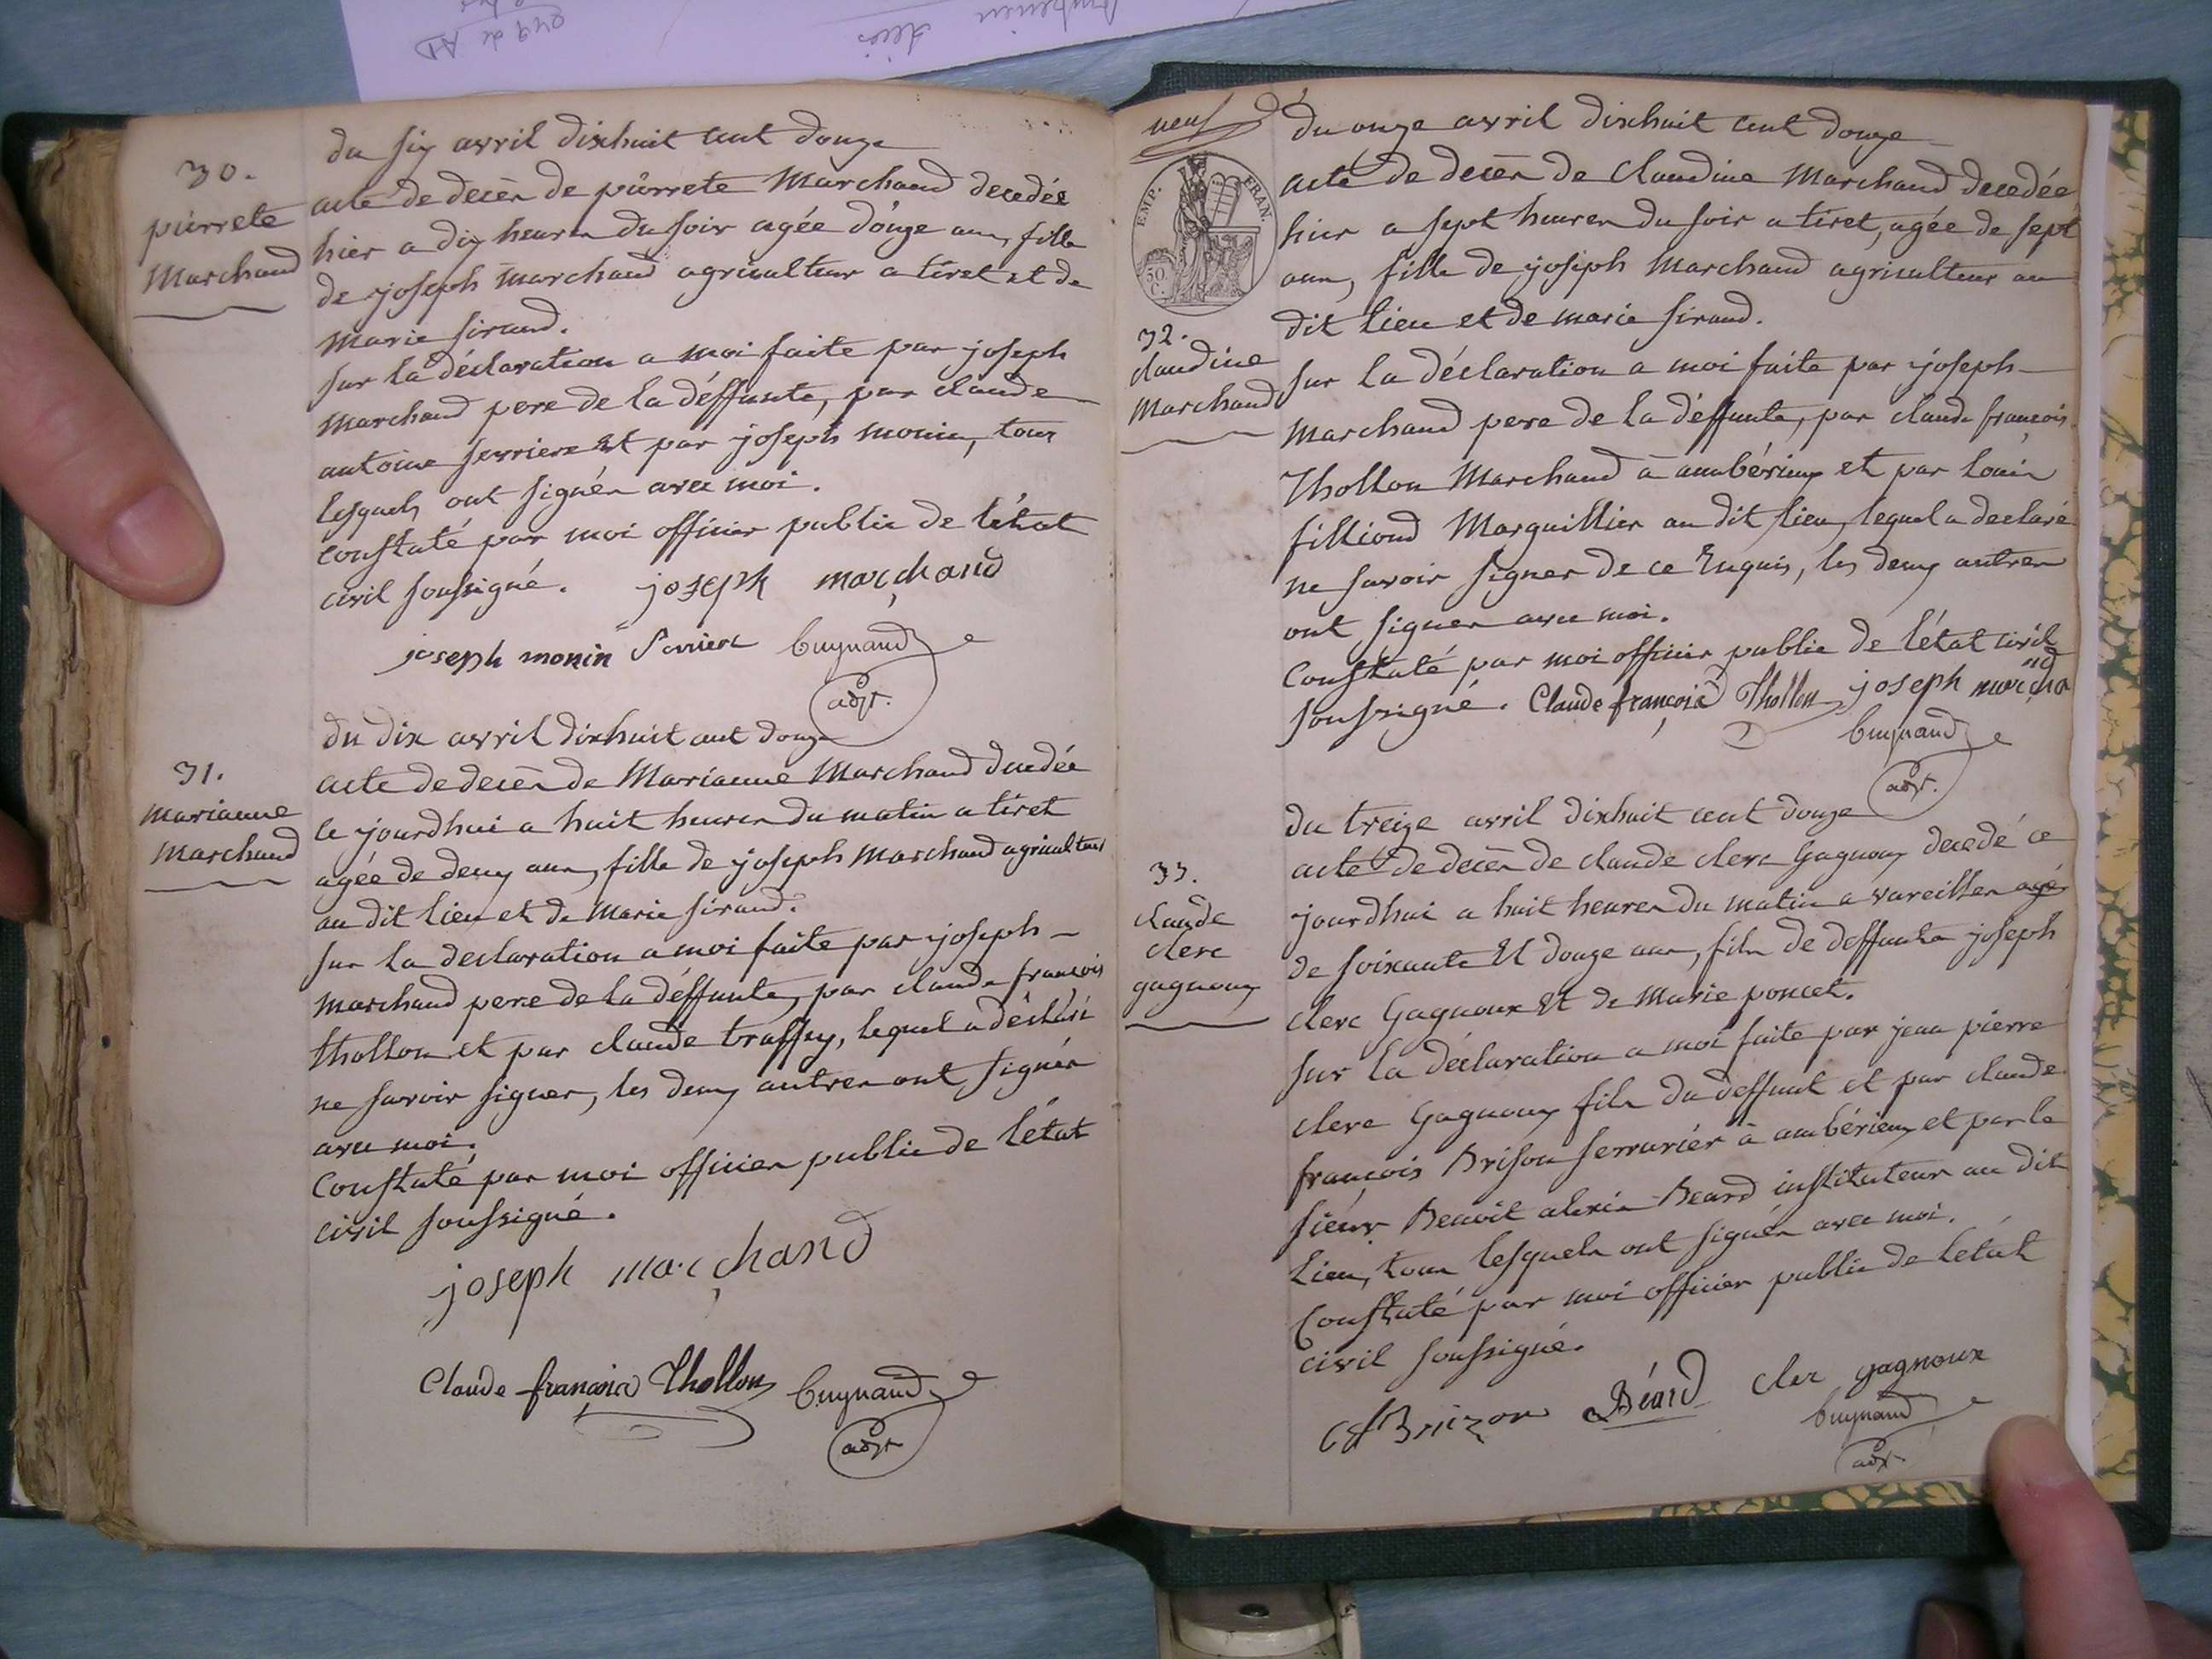 30.
pierrete
Marchand
du six avril dixhuit cent douze
acte de decès de pierrete Marchand decedée
hier a dix heures du soir agée d'onze ans, fille
de joseph marchand agriculteur a tiret et de
marie sirand.
sur la déclaration a moi faite par joseph
marchand pere de la déffunte, par claude
antoine serriere et par joseph monin, tous
lesquels ont signés avec moi.
constaté par moi officier public de l'état
civil soussigné. joseph marchand
joseph monin Serriere bugnand
adjt.
31.
marianne
marchand
du dix avril dixhuit cent douze
acte de decès de Marianne Marchand decedée
ce jourdhui a huit heures du matin a tiret
agée de deux ans, fille de joseph Marchand agriculteur
au dit lieu et de Marie sirand.
sur la declaration a moi faite par joseph
marchand pere de la déffunte, par claude françois
thollon et par claude traffey, lequel a déclaré
ne savoir signer, les deux autres ont signés
avec moi.
Constaté par moi officier public de l'état
civil soussigné.
joseph marchand
Claude françois Thollon bugnand
adjt
neuf
EMP. FRAN.
50 C.
32.
claudine
Marchand
du onze avril dixhuit cent douze
acte de decès de claudine Marchand decedée
hier a sept heures du soir a tiret, agée de sept
ans, fille de joseph Marchand agriculteur au
dit lieu et de marie sirand.
sur la déclaration a moi faite par joseph
marchand pere de la déffunte, par claude françois
Thollon Marchand à ambérieux et par louis
filliond Marguillier au dit lieu, lequel a declaré
ne savoir signer de ce Enquis, les deux autres
ont signer avec moi.
Constaté par moi officier public de l'état civil
soussigné. Claude françois Thollon joseph marcha
nd
bugnand
adjt.
33.
claude
clerc
gagnoux
du treize avril dixhuit cent douze
acte de decès de claude clerc Gagnoux decedé ce
jourdhui a huit heures du matin a vareilles agé
de soixante et douze ans, fils de deffunts joseph
clerc Gagnoux et de Marie poncet.
sur la déclaration a moi faite par jean pierre
clerc Gagnoux fils du deffunt et par claude
françois Brison serrurier à ambérieux et par le
sieur Benoit alexis Beard instituteur au dit
lieu, tous lesquels ont signés avec moi.
Constaté par moi officier public de letat
civil soussigné.
cf Brizon Béard cler gagnoux
bugnand
adjt.